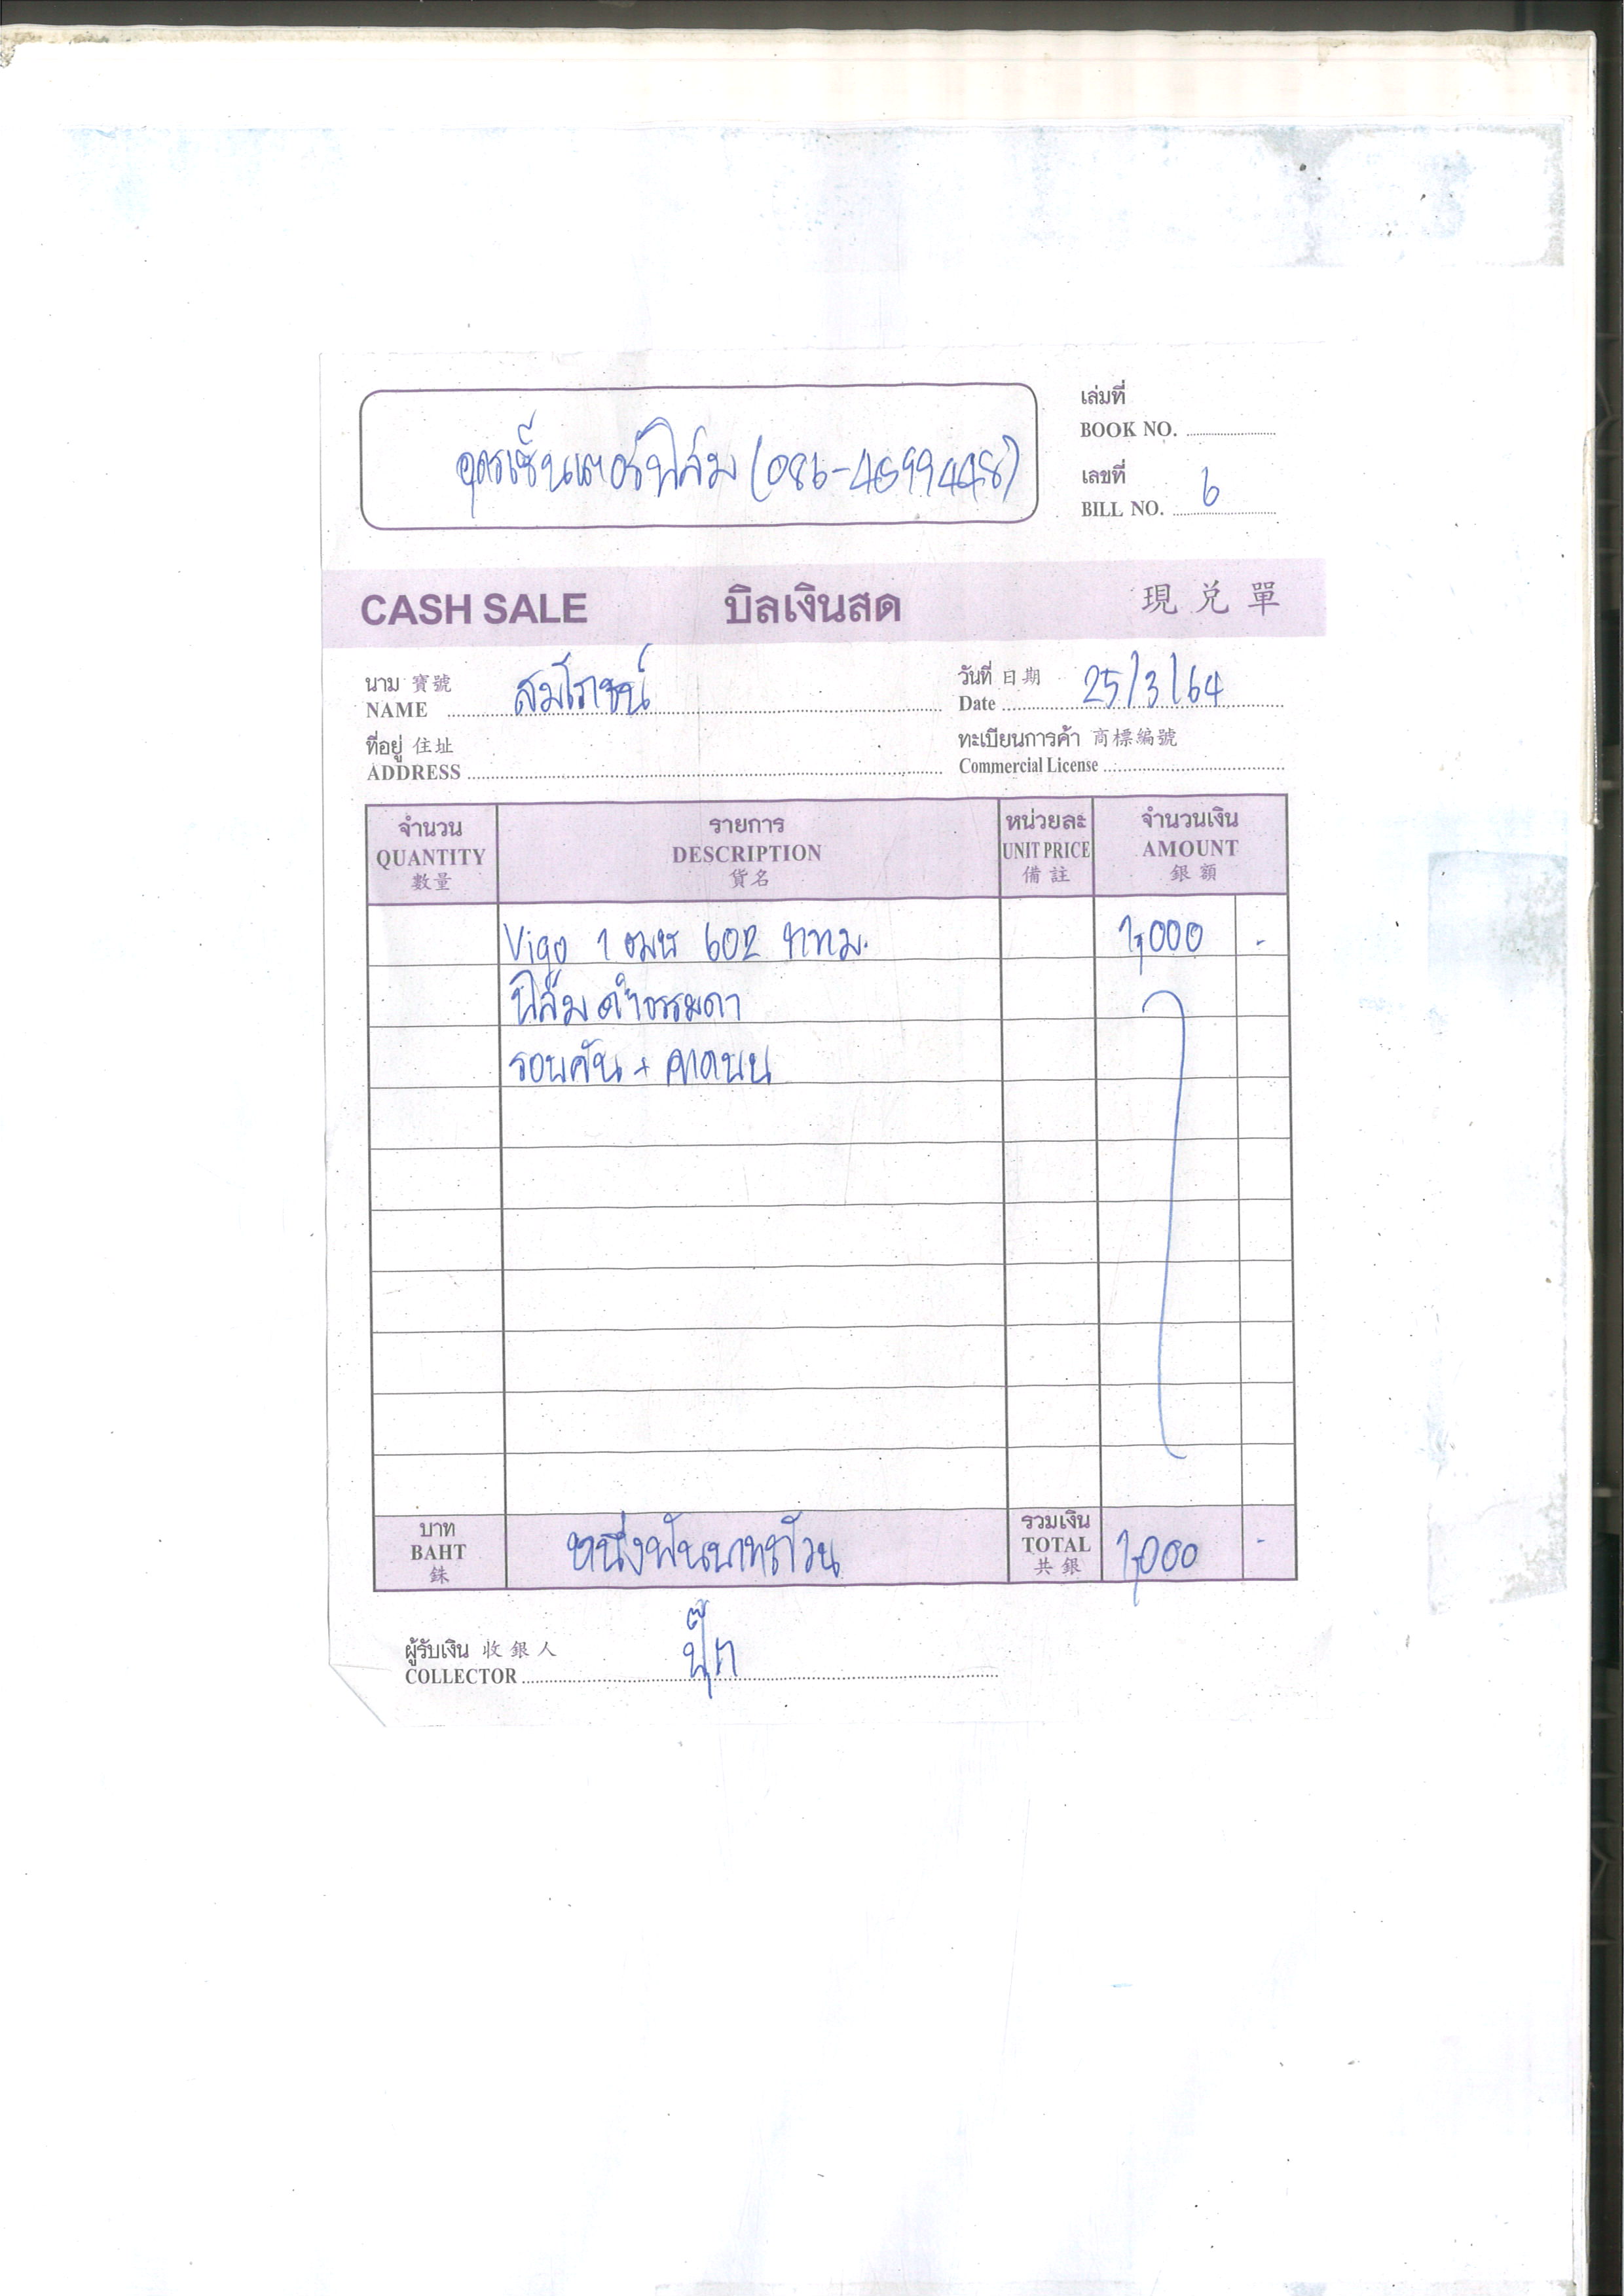 เล่มที่
BOOK NO.
อุดรเซ็นเตอร์ฟิล์ม (086-4599448)
เลขที่
BILL NO. 6
CASH SALE บิลเงินสด 現兑單
นาม 寶號
NAME สมโภชน์
วันที่ 日期
Date 25/3/64
ที่อยู่ 住址
ADDRESS
ทะเบียนการค้า 商標編號
Commercial License
จำนวน รายการ หน่วยละ จำนวนเงิน
QUANTITY DESCRIPTION UNIT PRICE AMOUNT
數量 貨名 備註 銀額
Vigo 1 602 กทม. 1,000 -
ฟิล์มดำธรรมดา
รอบคัน + คาดบน
บาท รวมเงิน
BAHT หนึ่งพันบาทถ้วน TOTAL 1,000 -
銖 共銀
ผู้รับเงิน 收銀人
COLLECTOR ปุ๊ก